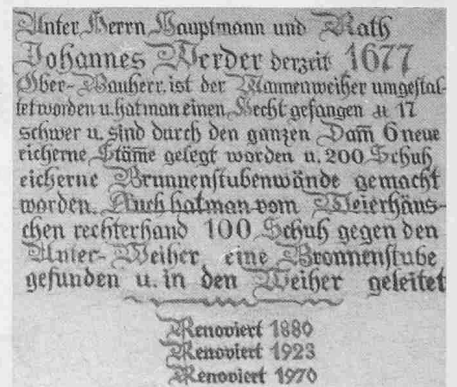 Unter Herrn Hauptmann und Rath
Johannes Werder derzeit 1677
Ober-Bauherr, ist der Mannenweiher umgestal-
tet worden u. hat man einen Hecht gefangen 17
schwer u. sind durch den ganzen Dam̄ 6 neue
eicherne Stäm̄e gelegt worden u. 200 Schuh
eicherne Brunnenstubenwände gemacht
worden. Auch hat man vom Weierhäus-
chen rechterhand 100 Schuh gegen den
Unter-Weiher eine Bronnenstube
gefunden u. in den Weiher geleitet
Renoviert 1880
Renoviert 1923
Renoviert 1970